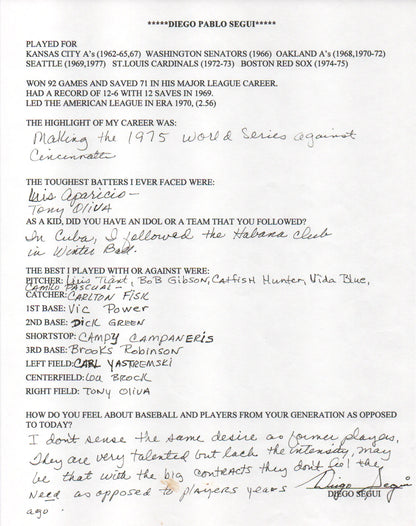 *****DIEGO PABLO SEGUI*****
PLAYED FOR
KANSAS CITY A's (1962-65,67) WASHINGTON SENATORS (1966) OAKLAND A's (1968,1970-72)
SEATTLE (1969,1977) ST.LOUIS CARDINALS (1972-73) BOSTON RED SOX (1974-75)
WON 92 GAMES AND SAVED 71 IN HIS MAJOR LEAGUE CAREER.
HAD A RECORD OF 12-6 WITH 12 SAVES IN 1969.
LED THE AMERICAN LEAGUE IN ERA 1970, (2.56)
THE HIGHLIGHT OF MY CAREER WAS:
Making the 1975 World Series against
Cincinnati
THE TOUGHEST BATTERS I EVER FACED WERE:
Luis Aparicio -
Tony Oliva
AS A KID, DID YOU HAVE AN IDOL OR A TEAM THAT YOU FOLLOWED?
In Cuba, I followed the Habana Club
in Winter Ball.
THE BEST I PLAYED WITH OR AGAINST WERE:
PITCHER: Luis Tiant, BoB Gibson, Catfish Hunter, Vida Blue,
Camilo Pascual -
CATCHER: CARLTON FISK
1ST BASE: Vic Power
2ND BASE: Dick GREEN
SHORTSTOP: CAMPY CAMPANERIS
3RD BASE: Brooks Robinson
LEFT FIELD: CARL YASTREMSKI
CENTERFIELD: Lou BROCK
RIGHT FIELD: TONY Oliva
HOW DO YOU FEEL ABOUT BASEBALL AND PLAYERS FROM YOUR GENERATION AS OPPOSED
TO TODAY?
I don't sense the same desire as former players.
They are very talented but lack the intensity, may
be that with the big contracts they don't feel the
need as opposed to players years
ago.
Diego Segui
DIEGO SEGUI